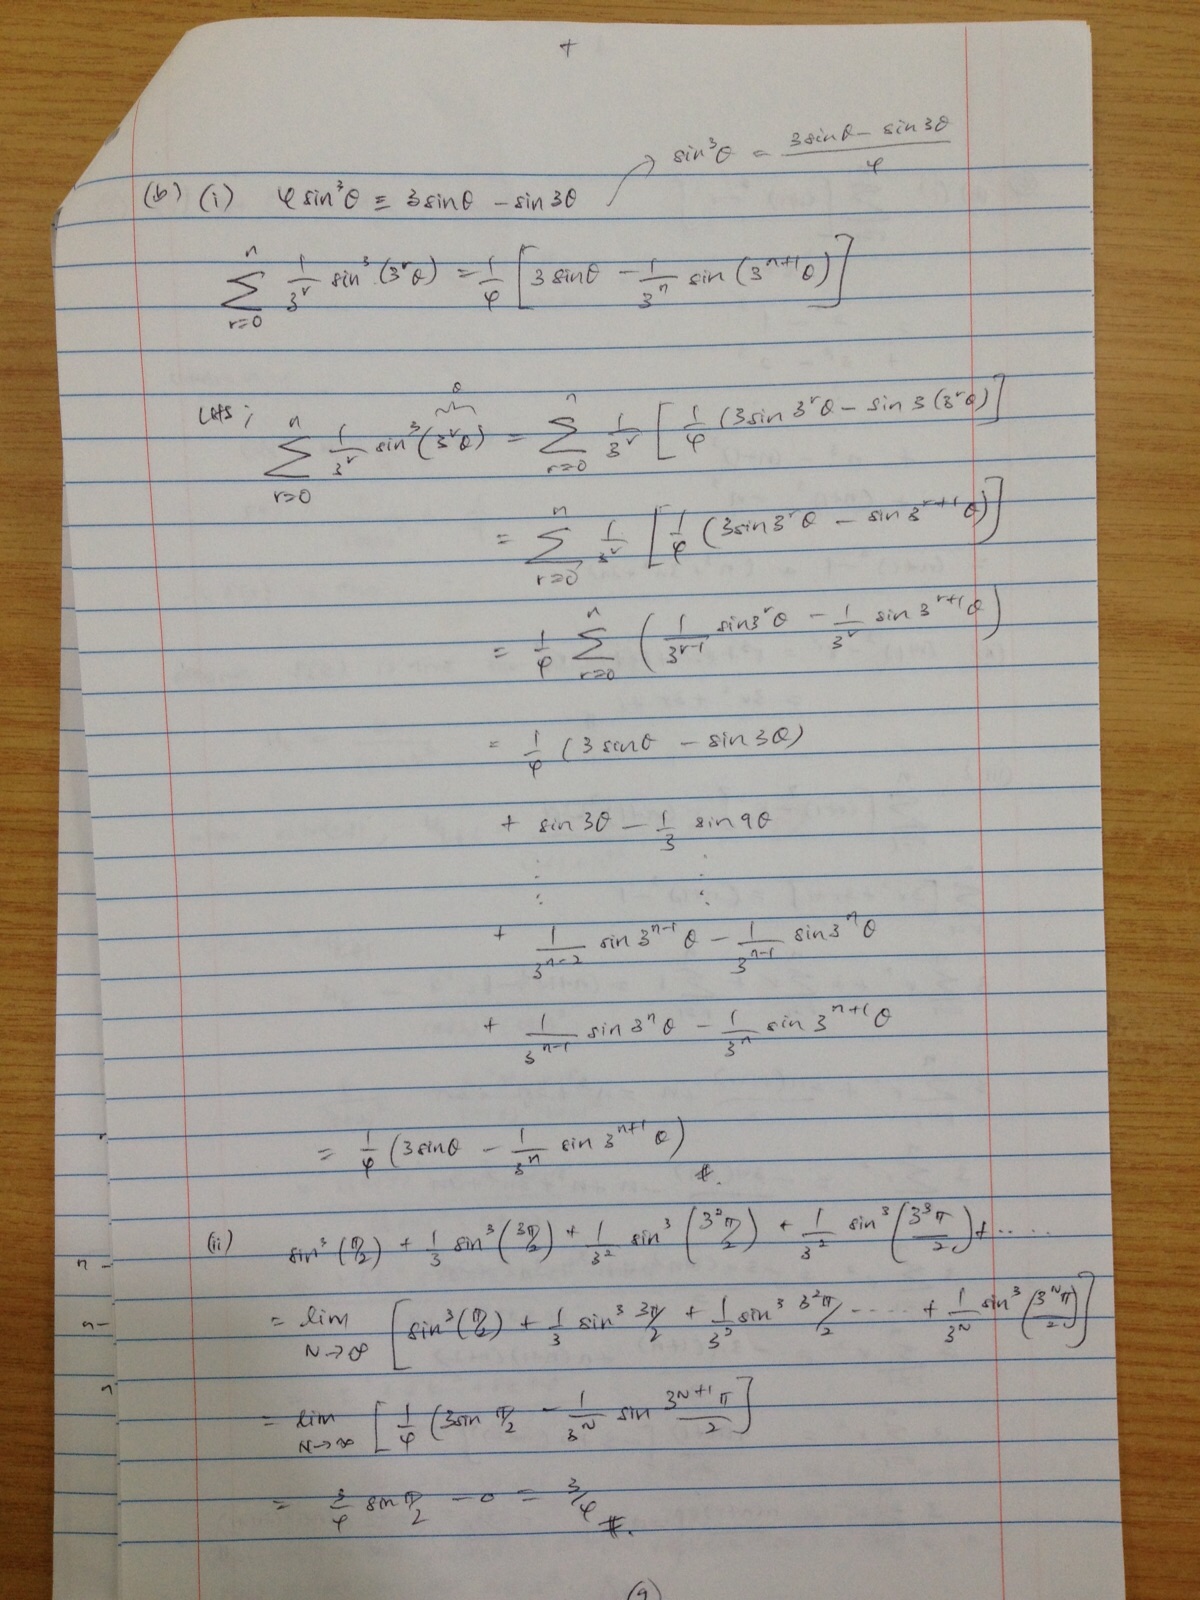 +
sin³θ = (3sinθ - sin3θ)/4
(b) (i) 4sin³θ ≡ 3sinθ - sin3θ
∑_{r=0}^{n} 1/3^r sin³(3^rθ) = 1/4 [3sinθ - 1/3^n sin(3^{n+1}θ)]
θ
LHS; ∑_{r=0}^{n} 1/3^r sin³(3^rθ) = ∑_{r=0}^{n} 1/3^r [1/4 (3sin3^rθ - sin3(3^rθ)]
= ∑_{r=0}^{n} 1/3^r [1/4 (3sin3^rθ - sin3^{r+1}θ)]
= 1/4 ∑_{r=0}^{n} (1/3^{r-1} sin3^rθ - 1/3^r sin3^{r+1}θ)
= 1/4 (3sinθ - sin3θ)
+ sin3θ - 1/3 sin9θ
⋮ ⋮
+ 1/3^{n-2} sin3^{n-1}θ - 1/3^{n-1} sin3^nθ
+ 1/3^{n-1} sin3^nθ - 1/3^n sin3^{n+1}θ
= 1/4 (3sinθ - 1/3^n sin3^{n+1}θ) #.
(ii) sin³(π/2) + 1/3 sin³(3π/2) + 1/3² sin³(3²π/2) + 1/3² sin³(3³π/2) + .....
= lim_{N→∞} [sin³(π/2) + 1/3 sin³ 3π/2 + 1/3² sin³ 3²π/2 ..... + 1/3^N sin³(3^Nπ/2)]
= lim_{N→∞} [1/4 (3sin π/2 - 1/3^N sin 3^{N+1}π/2]
= 3/4 sin π/2 - 0 = 3/4 #.
(9)